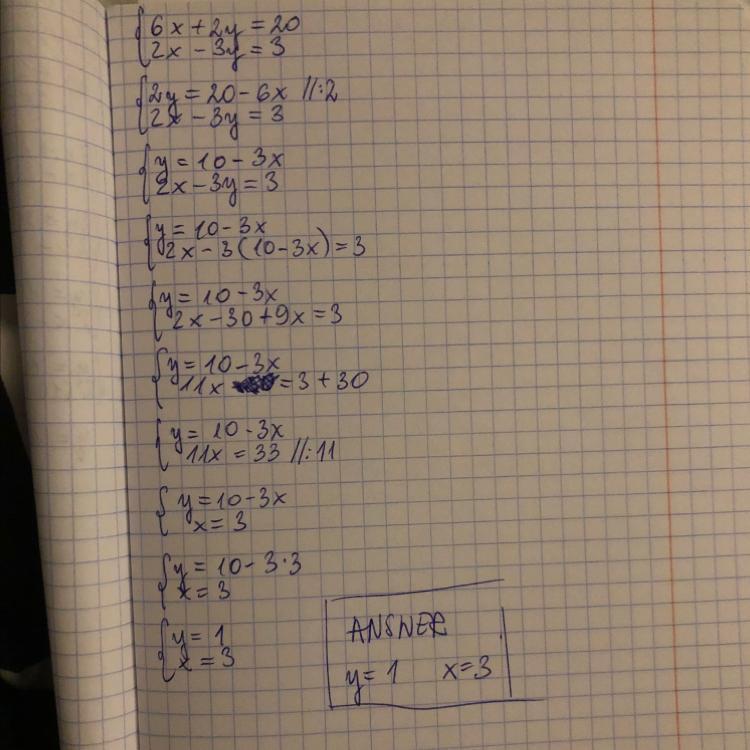 6x + 2y = 20
2x - 3y = 3
2y = 20 - 6x //:2
2x - 3y = 3
y = 10 - 3x
2x - 3y = 3
y = 10 - 3x
2x - 3(10 - 3x) = 3
y = 10 - 3x
2x - 30 + 9x = 3
y = 10 - 3x
11x = 3 + 30
y = 10 - 3x
11x = 33 //:11
y = 10 - 3x
x = 3
y = 10 - 3·3
x = 3
y = 1
x = 3
ANSWER
y = 1 x = 3